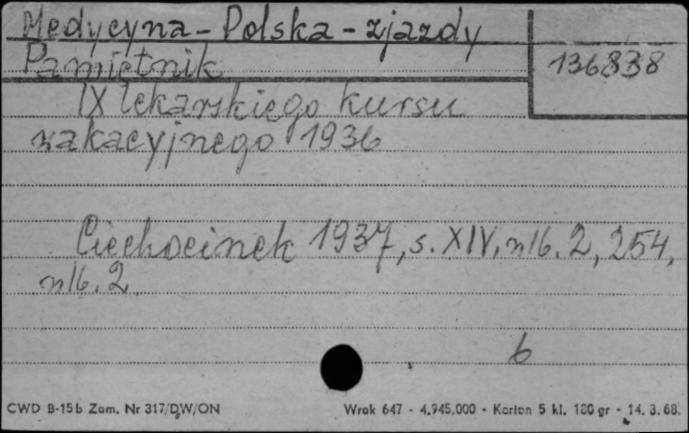 Medycyna - Polska - zjazdy
Pamiętnik
136838
IX lekarskiego kursu
wakacyjnego 1936
Ciechocinek 1937, s. XIV, nlb. 2, 254,
nlb. 2
b
CWD B-15b Zam. Nr 317/DW/ON
Wrak 647 - 4.945.000 - Karton 5 kl. 180 gr - 14. 3. 68.